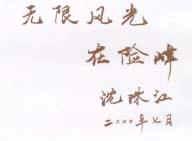 无限风光
在险峰
沈珠江
二〇〇〇年七月